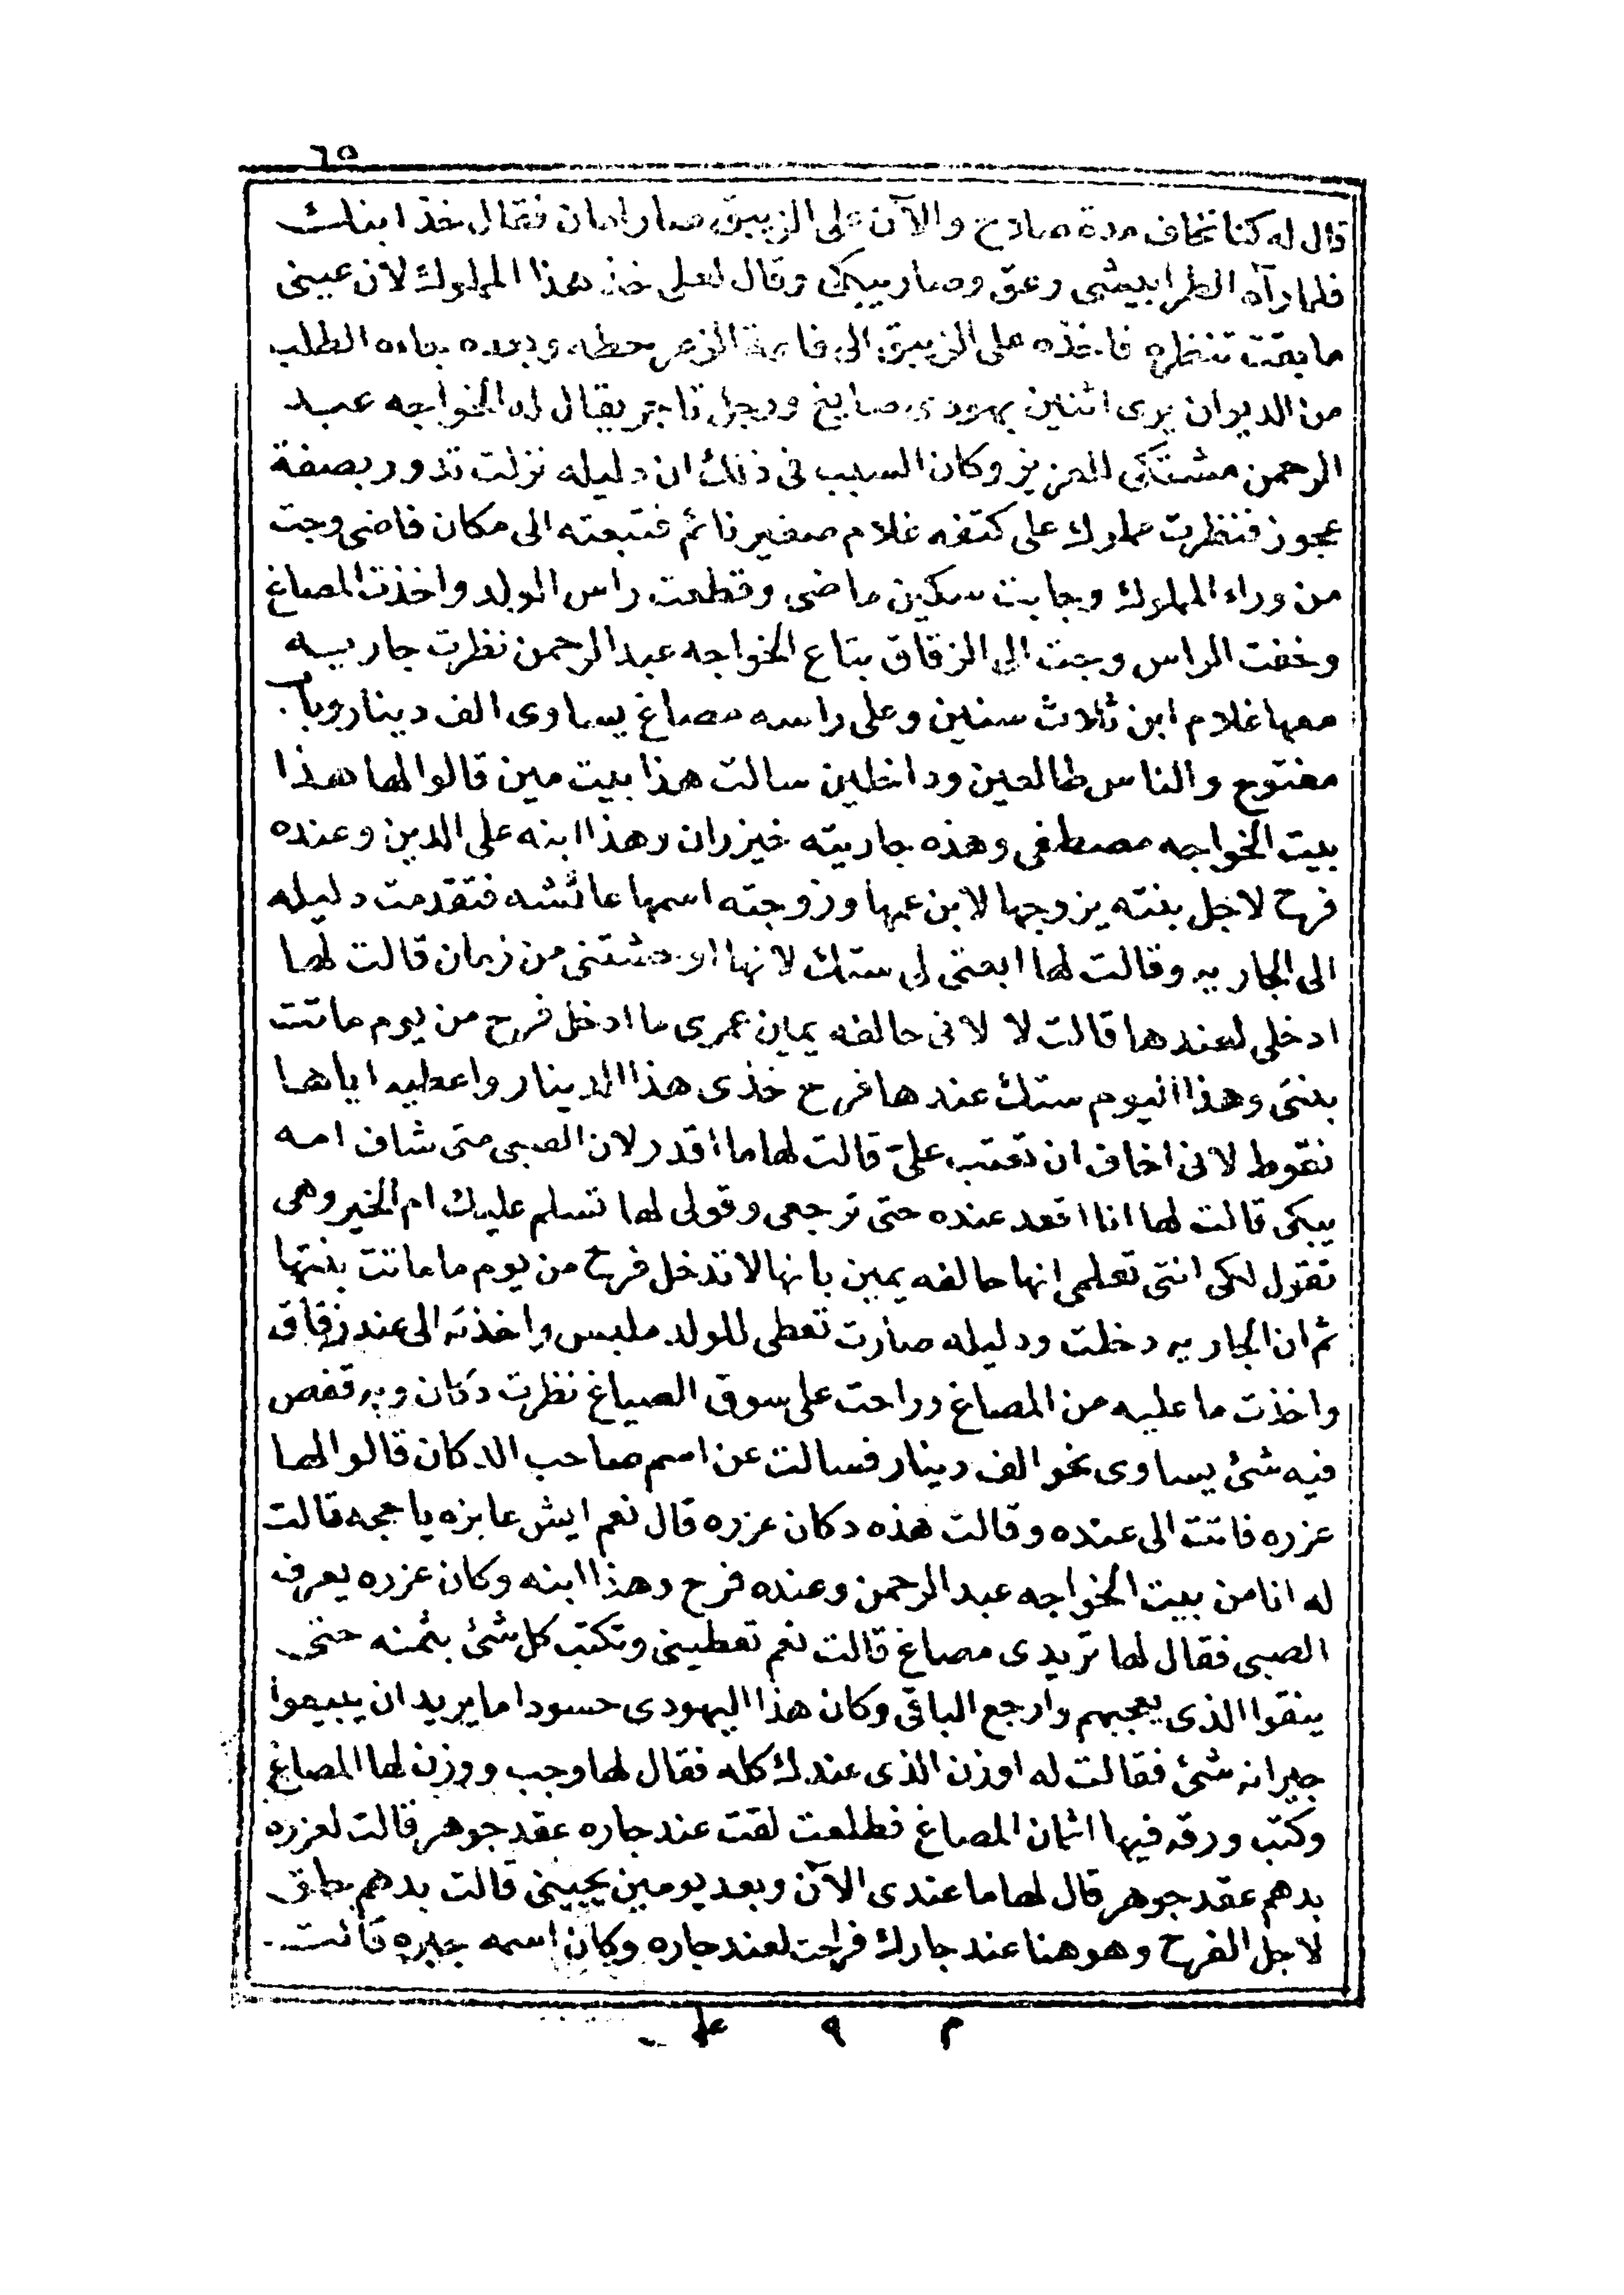 ٦٥
قال له كنا نخاف مدة صلاح والآن على الزيبق صار امان فقال خذ ابنك
فلما رآه الطرابيشى زعق وصار يبكى وقال لعلى خذ هذا المملوك لان عينى
ما بقت تنظره فاخذه على الزيبق الى قاعة الزعر حطه وبعده جاءه الطلب
من الديوان يرى اثنين يهودى صايغ ورجل تاجر يقال له الخواجه عبد
الرحمن مشتكى للعزيز وكان السبب فى ذلك ان دليله نزلت تدور بصفة
عجوز فنظرت مملوك على كتفه غلام صغير نائم فتبعته الى مكان فاضى وجت
من وراء المملوك وجابت سكين ماضى وقطعت راس الولد واخذت المصاغ
وخفت الراس وجت الى الزقاق بتاع الخواجه عبد الرحمن نظرت جاريه
معها غلام ابن ثلاث سنين وعلى راسه مصاغ يساوى الف دينار وباب
مفتوح والناس طالعين وداخلين سالت هذا بيت مين قالوا لها هذا
بيت الخواجه مصطفى وهذه جاريته خيزران وهذا ابنه على الدين وعنده
فرح لاجل بنته يزوجها لابن عمها وزوجته اسمها عائشه فتقدمت دليله
الى الجاريه وقالت لها ابعتى لى ستك لانها اوحشتنى من زمان قالت لها
ادخلى لعندها قالت لا لانى حالفه يمين عمرى ما ادخل فرح من يوم ماتت
بنتى وهذا اليوم ستك عندها فرح خذى هذا الدينار واعطيه اياها
نقوط لانى اخاف ان تعتب علىّ قالت لها ما اقدر لان الصبى متى شاف امه
يبكى قالت لها انا اقعد عنده حتى ترجعى وقولى لها تسلم عليك ام الخير وهى
تقول لكى انتى تعلمى انها حالفه يمين بانها لا تدخل فرح من يوم ما ماتت بنتها
ثم ان الجاريه دخلت ودليله صارت تعطى للولد ملبس واخذته الى عند زقاق
واخذت ما عليه من المصاغ وراحت على سوق الصياغ نظرت دكان وبه قفص
فيه شئ يساوى نحو الف دينار فسالت عن اسم صاحب الدكان قالوا لها
عزره فاتت الى عنده وقالت هذه دكان عزره قال نعم ايش عايزه يا حجه قالت
له انا من بيت الخواجه عبد الرحمن وعنده فرح وهذا ابنه وكان عزره يعرف
الصبى فقال لها تريدى مصاغ قالت نعم تعطينى وتكتب كل شئ بثمنه حتى
ينقوا الذى يعجبهم وارجع الباقى وكان هذا اليهودى حسودا ما يريد ان يبيعوا
جيرانه شئ فقالت له اوزن الذى عندك كله فقال لها وجب ووزن لها المصاغ
وكتب ورقه فيها اثمان المصاغ فطلعت لقت عند جاره عقد جوهر قالت لعزره
بدهم عقد جوهر قال لها ما عندى الآن وبعد يومين يجينى قالت بدهم
لاجل الفرح وهو هنا عند جارك فراحت لعند جاره وكان اسمه جبره قالت
م ٩